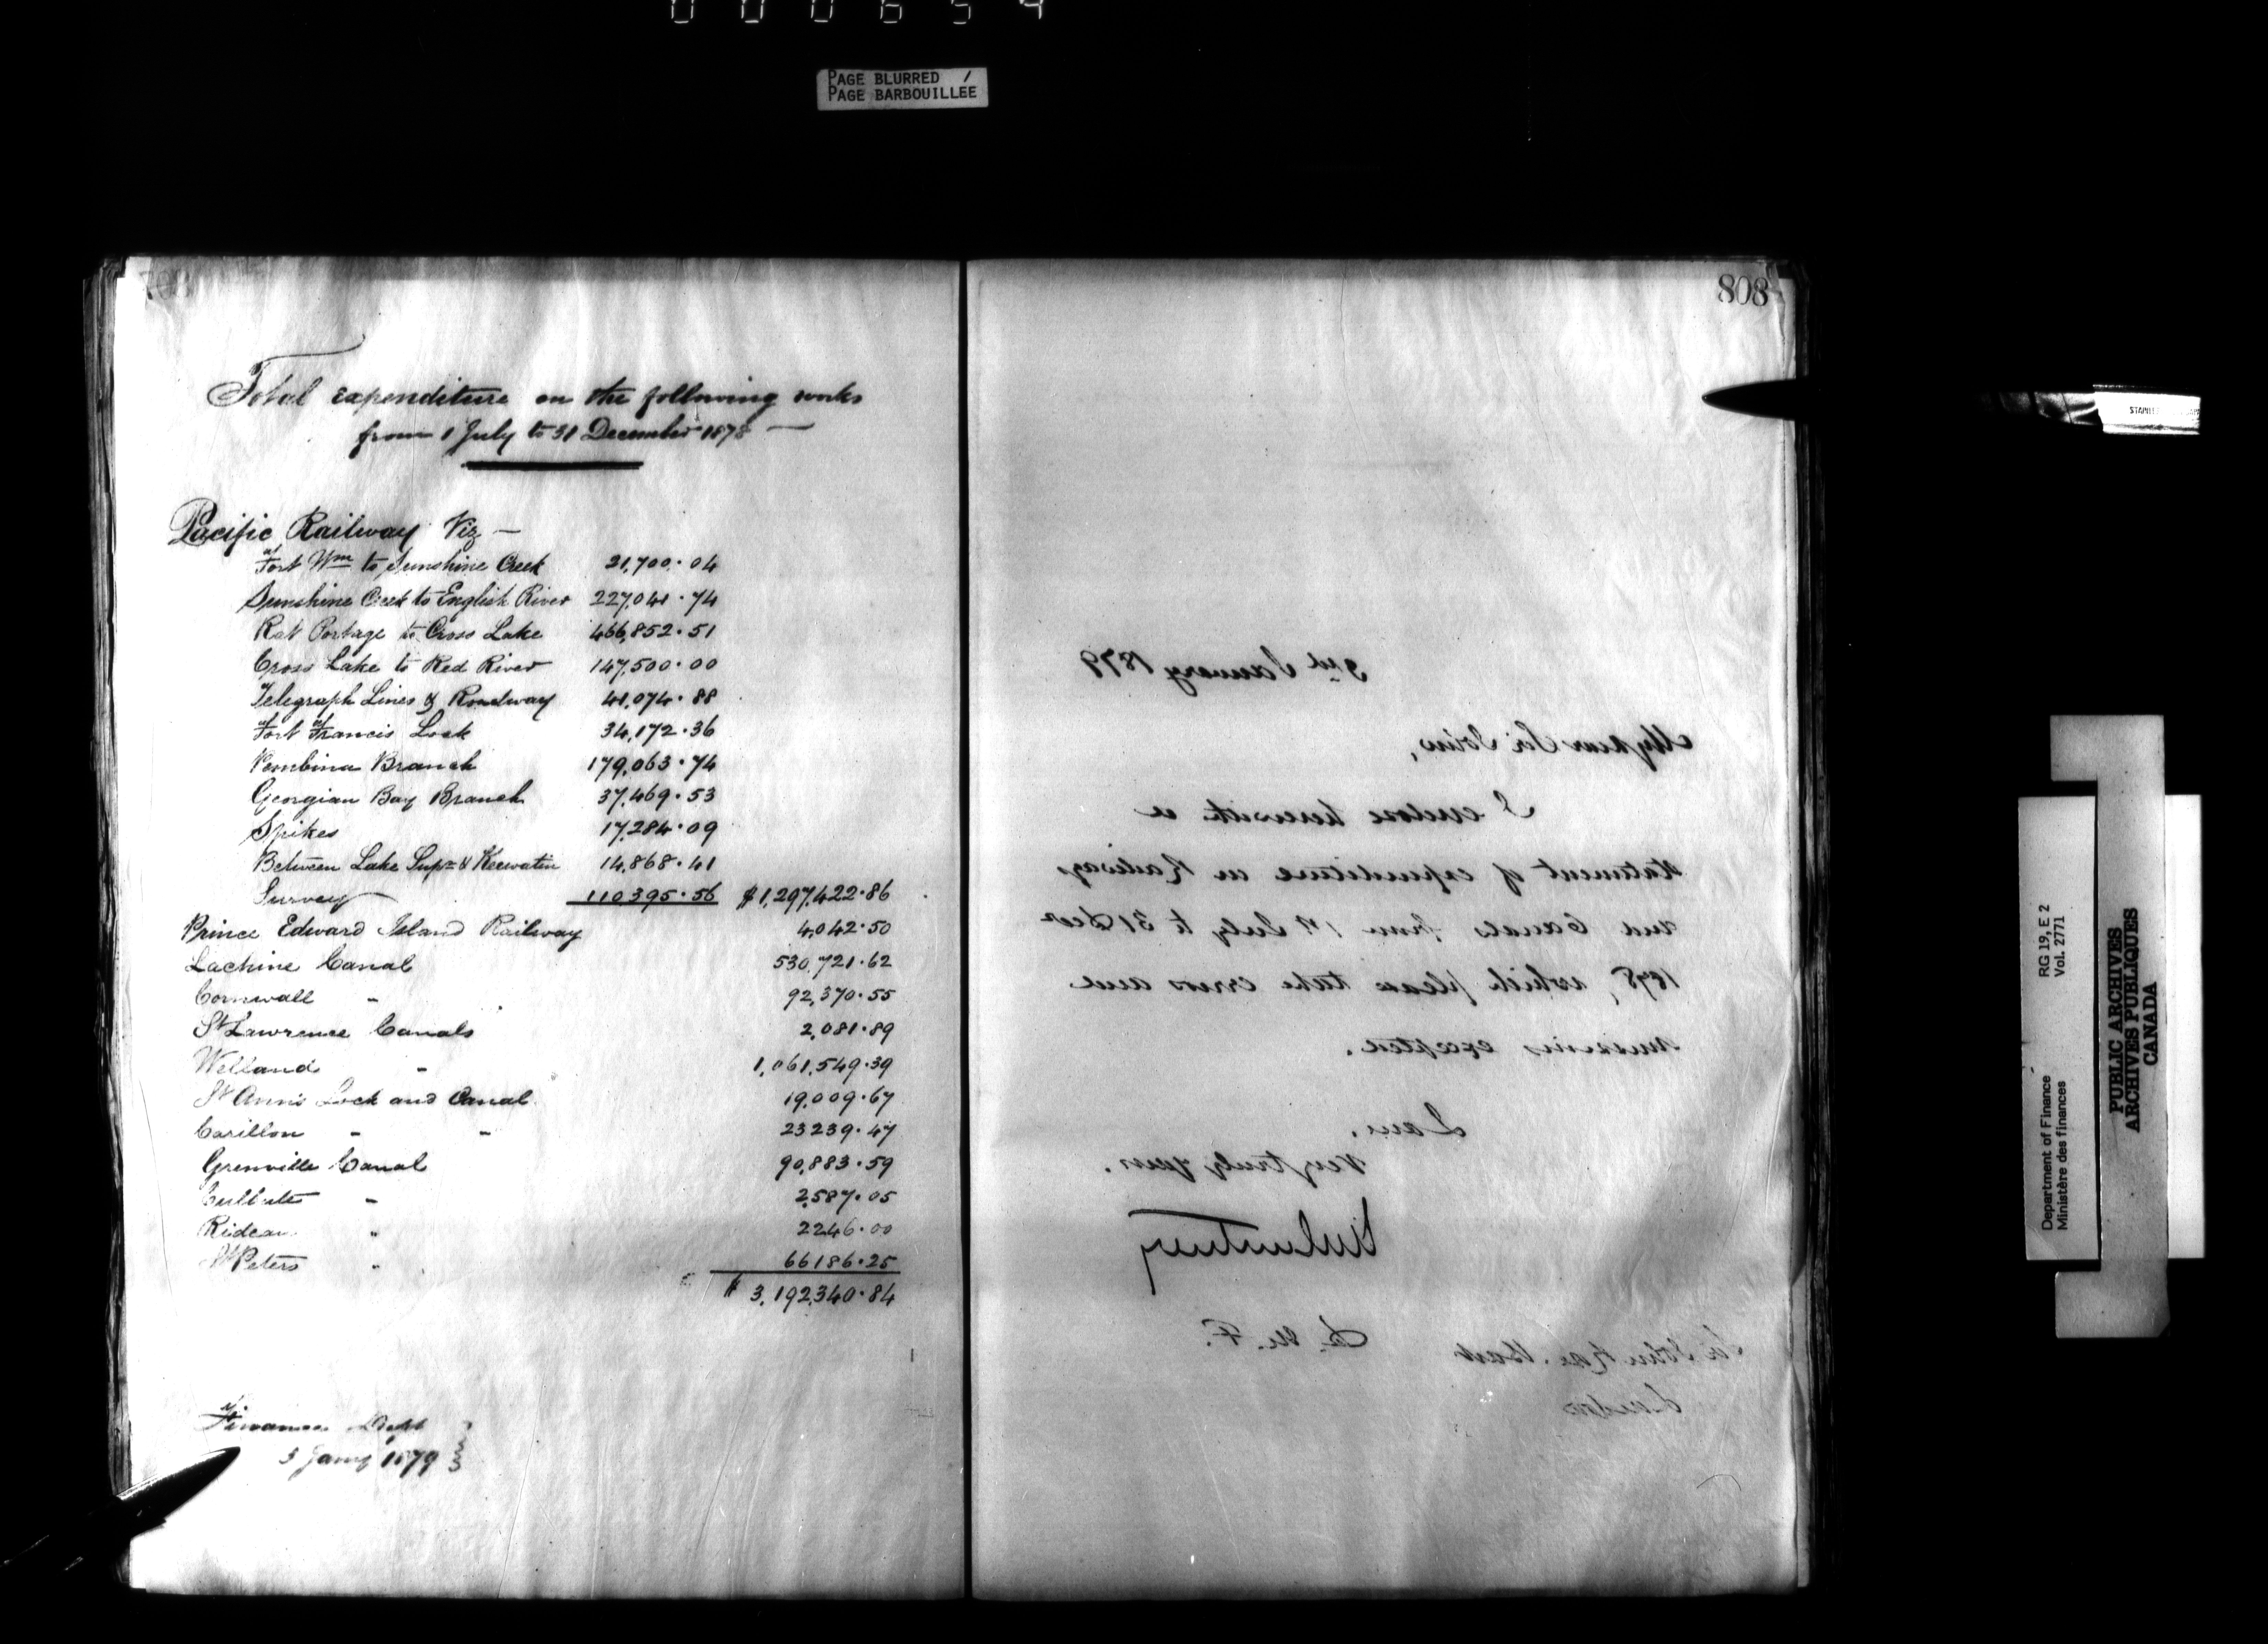 000654
PAGE BLURRED /
PAGE BARBOUILLEE
Total expenditure on the following works
from 1 July to 31 December 1878 —
Pacific Railway Viz —
Fort Wm to Sunshine Creek 21,700.04
Sunshine Creek to English River 227,041.74
Rat Portage to Cross Lake 466,852.51
Cross Lake to Red River 147,500.00
Telegraph Lines & Roadway 41,074.88
Fort Francis Lock 34,172.36
Pembina Branch 179,063.74
Georgian Bay Branch 37,469.53
Spikes 17,284.09
Between Lake Supr & Keewatin 14,868.41
Survey 110395.56 $1,297,422.86
Prince Edward Island Railway 4,042.50
Lachine Canal 530,721.62
Cornwall " 92,370.55
St Lawrence Canals 2,081.89
Welland " 1,061,549.39
St Ann's Lock and Canal 19,009.67
Carillon " " 23239.47
Grenville Canal 90,883.59
Culbute " 2,587.05
Rideau " 2246.00
St Peters " 66186.25
$ 3,192,340.84
Finance Dept
3 Jany 1879
808
3rd January 1879
My dear Sir John,
I enclose herewith a
statement of expenditure on Railways
and Canals from 1st July to 31 Dec
1878, which please take errors and
omissions excepted.
I am,
Very truly yours.
D. M. F.
Sir John Rose. Bart
London
RG 19, E 2
Vol. 2771
Department of Finance
Ministère des finances
PUBLIC ARCHIVES
ARCHIVES PUBLIQUES
CANADA